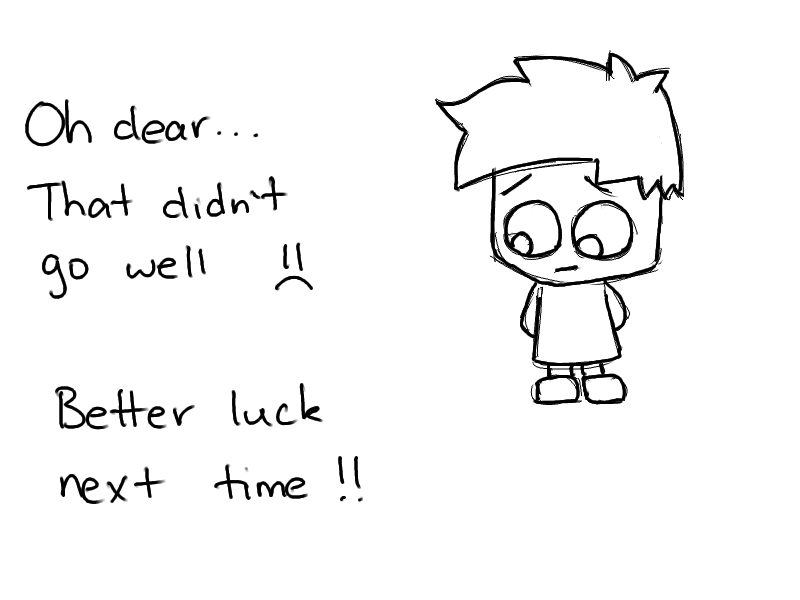 Oh dear...
That didn't
go well
Better luck
next time !!